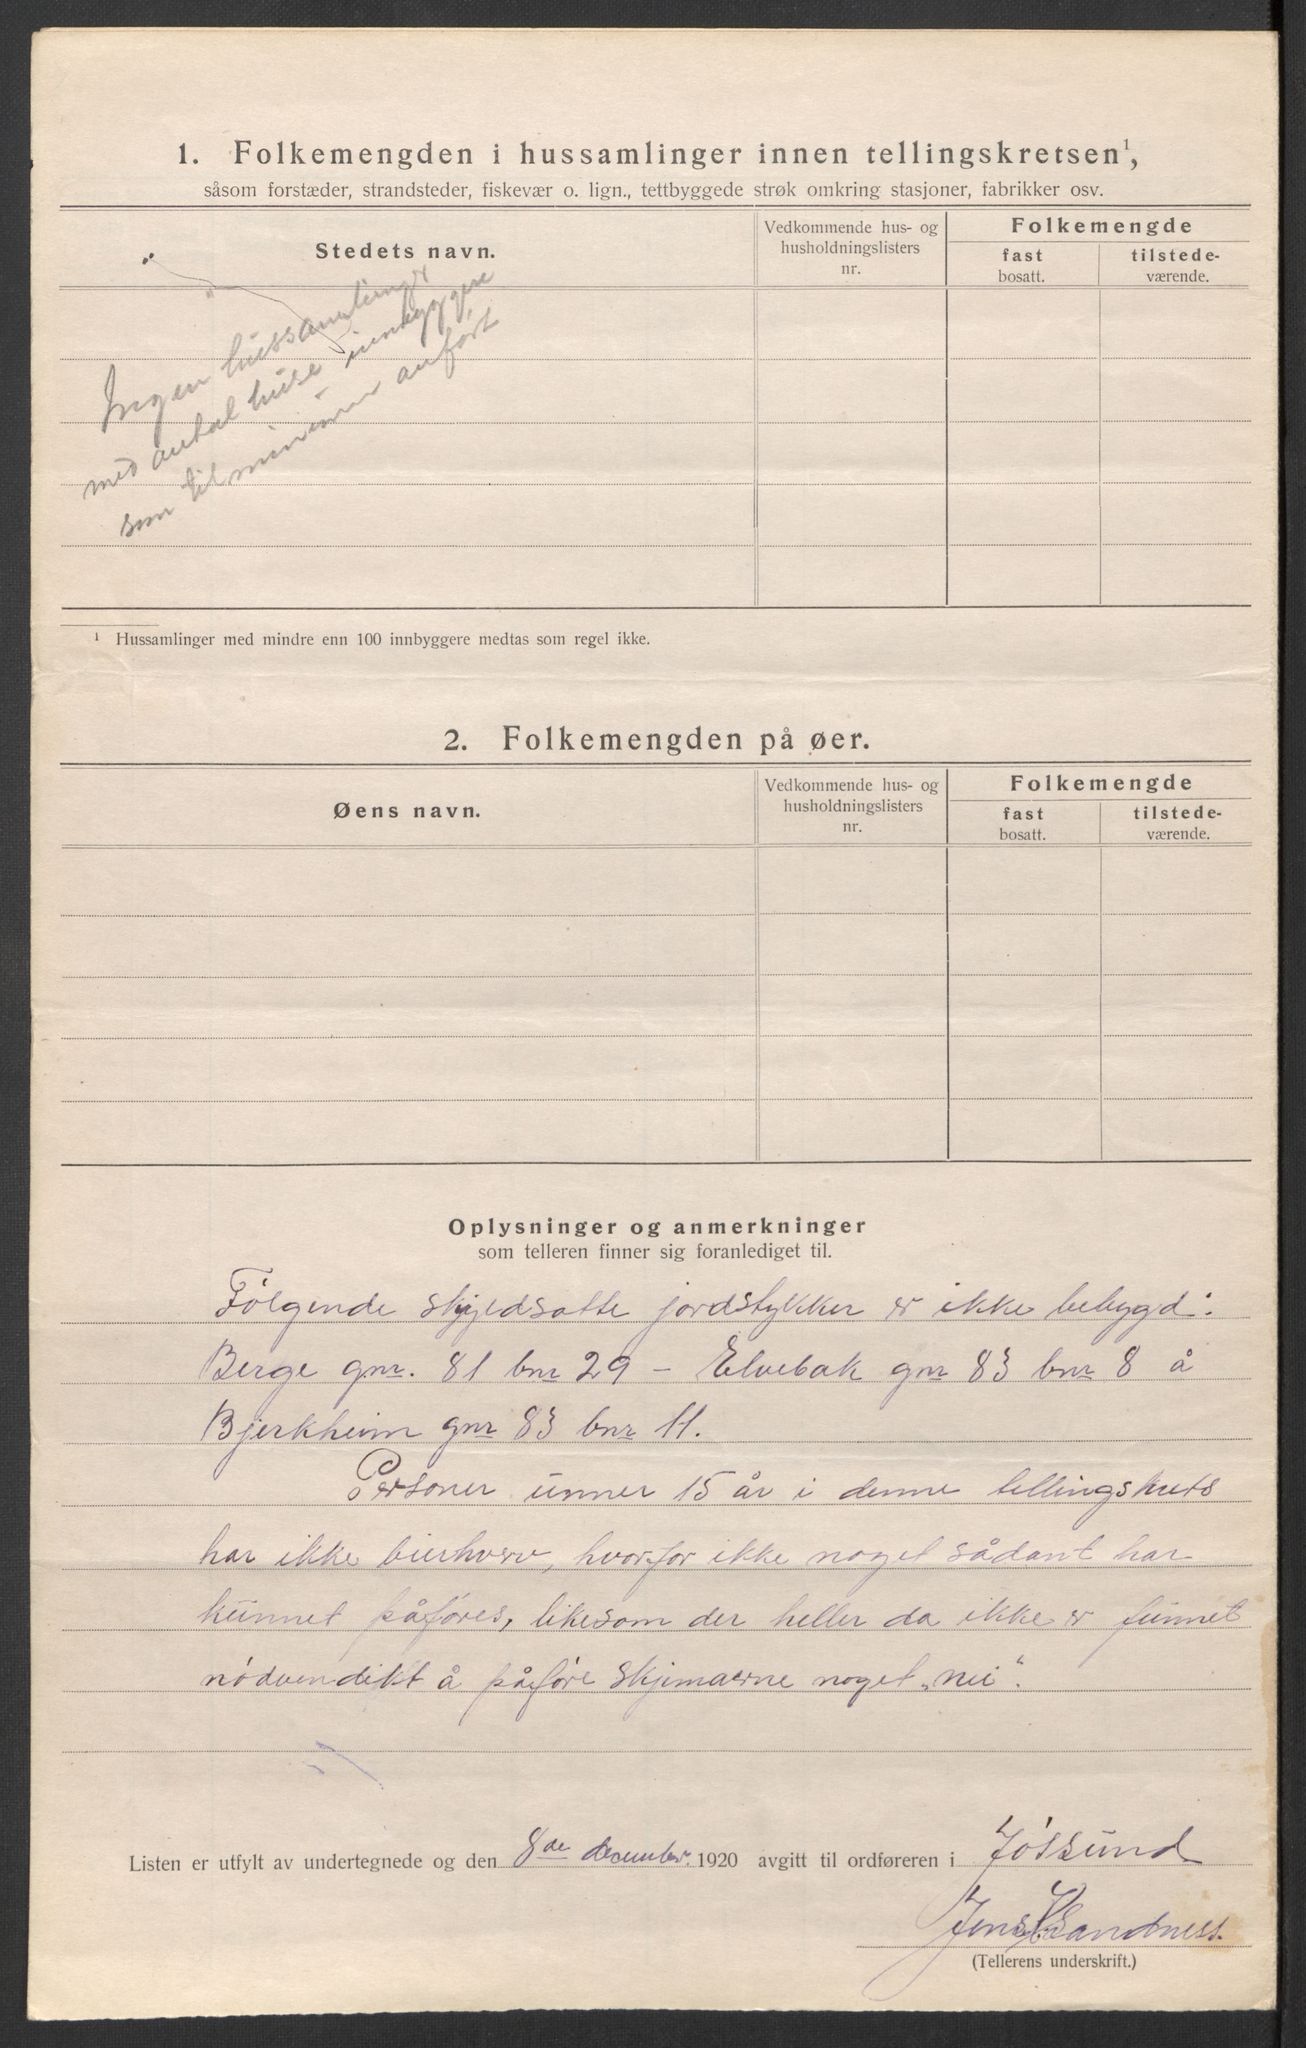 1. Folkemengden i hussamlinger innen tellingskretsen¹,
såsom forstæder, strandsteder, fiskevær o. lign., tettbyggede strøk omkring stasjoner, fabrikker osv.
Stedets navn.
Vedkommende hus- og
husholdningslisters
nr.
Folkemengde
fast
bosatt.
tilstede-
værende.
Ingen hussamlinger
med antal huse innbyggere
som til minimum anført
¹ Hussamlinger med mindre enn 100 innbyggere medtas som regel ikke.
2. Folkemengden på øer.
Øens navn.
Vedkommende hus- og
husholdningslisters
nr.
Folkemengde
fast
bosatt.
tilstede-
værende.
Oplysninger og anmerkninger
som telleren finner sig foranlediget til.
Følgende skyldsatte jordstykker er ikke bebygd:
Berge gnr. 81 bnr 29 – Elvebak gnr 83 bnr 8 å
Bjerkheim gnr 83 bnr 11.
Personer unner 15 år i denne tellingskrets
har ikke bierhverv, hvorfor ikke noget sådant har
kunnet påføres, likesom der heller da ikke er funnet
nødvendikt å påføre skjemaerne noget „nei“.
Listen er utfylt av undertegnede og den 8de december 1920 avgitt til ordføreren i Jøssund
Jens Sandness.
(Tellerens underskrift.)